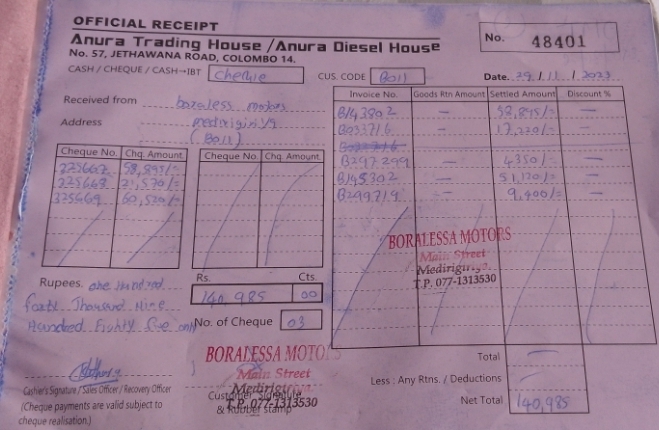 OFFICIAL RECEIPT
Anura Trading House /Anura Diesel House
No. 57, JETHAWANA ROAD, COLOMBO 14.
No. 48401
CASH / CHEQUE / CASH→IBT Cheque
CUS. CODE B011
Date. 29/11/2023
Received from boraless motors
Address medirigiriya
(B011)
Cheque No. Chq. Amount Cheque No. Chq. Amount
225662 58,895/=
225668 21,570/=
60,520/=
Invoice No. Goods Rtn Amount Settled Amount Discount %
B143802 — 58,895/= —
B033716 — 17,220/= —
B297299 — 4350/= —
B145302 — 51,120/= —
B299719 — 9,400/= —
BORALESSA MOTORS
Main Street
Medirigiriya.
T.P. 077-1313530
Rupees. one Hundred
Forty Thousand Nine
Hundred Eighty five only
Rs. Cts.
140,985 00
No. of Cheque 03
BORALESSA MOTORS
Main Street
Medirigiriya
T.P. 077-1313530
Cashier's Signature / Sales Officer / Recovery Officer
(Cheque payments are valid subject to
cheque realisation.)
Customer Signature
& Rubber stamp
Total —
Less : Any Rtns. / Deductions
Net Total 140,985